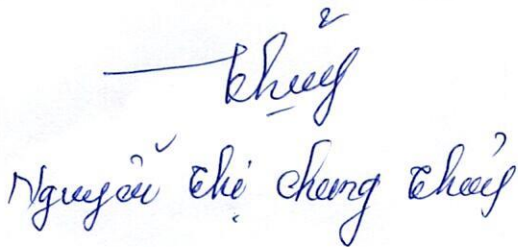 Thuỷ
Nguyễn Thị Chung Thuỷ